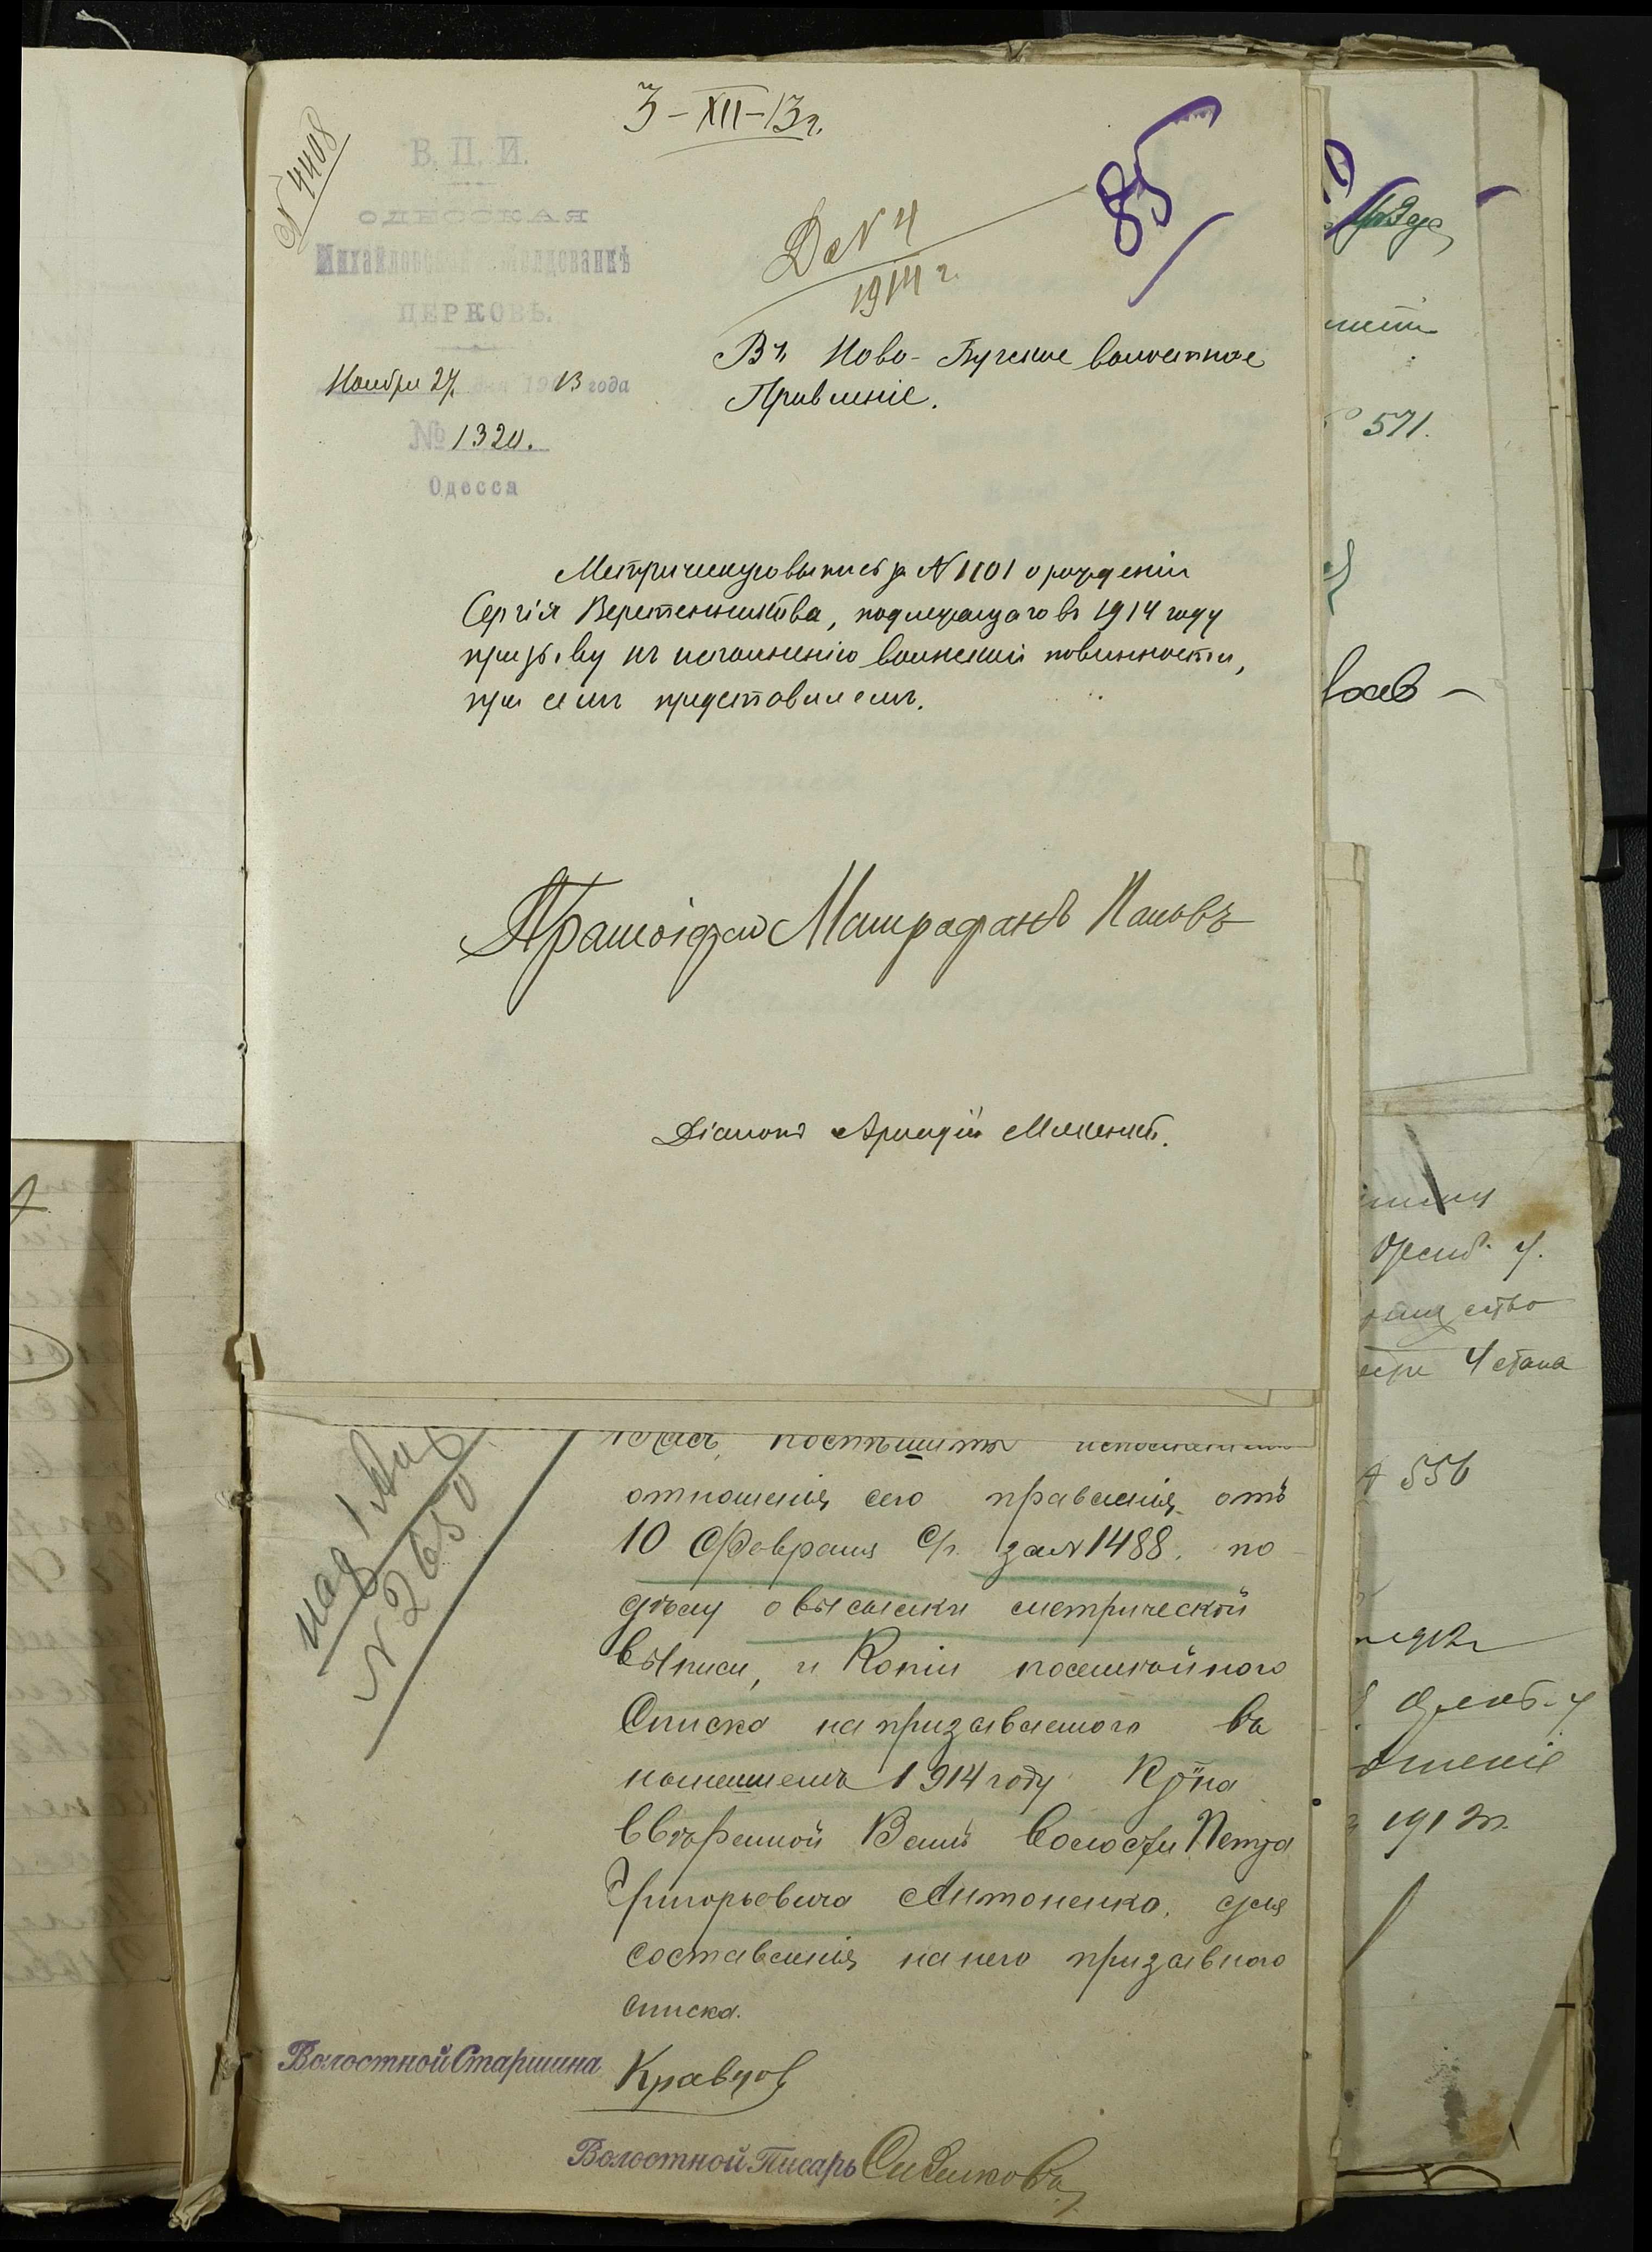 3-XII-13 г.
№ 4408
85
В. П. И.
ОДЕССКАЯ
Михайловская Молдованкѣ
ЦЕРКОВЬ.
Дѣ № 4
1914 г.
Ноября 27 дня 1913 года
№ 1320.
Одесса
Въ Ново-Бугское волостное
Правленіе.
Метрическую выпись за № 1101 о рожденіи
Сергія Веретенникова, подлежащаго въ 1914 году
призыву къ исполненію воинской повинности,
при семъ представляемъ.
Митрофанъ Поповъ
Діаконъ Аркадій
поспѣшить исполненіемъ
отношенія сего правленія отъ
10 Февраля с/г. за № 1488. по
дѣлу о высылки метрической
выписи, и Копіи посемейного
Списка на призываемого въ
1914 году Кр-на
ввѣренной Вамъ Волости Петра
Григорьевича Антоненко, для
составленія на него призывного
списка.
№ 2650
Волостной Старшина Кравцов
Волостной Писарь
571.
4 стана
556